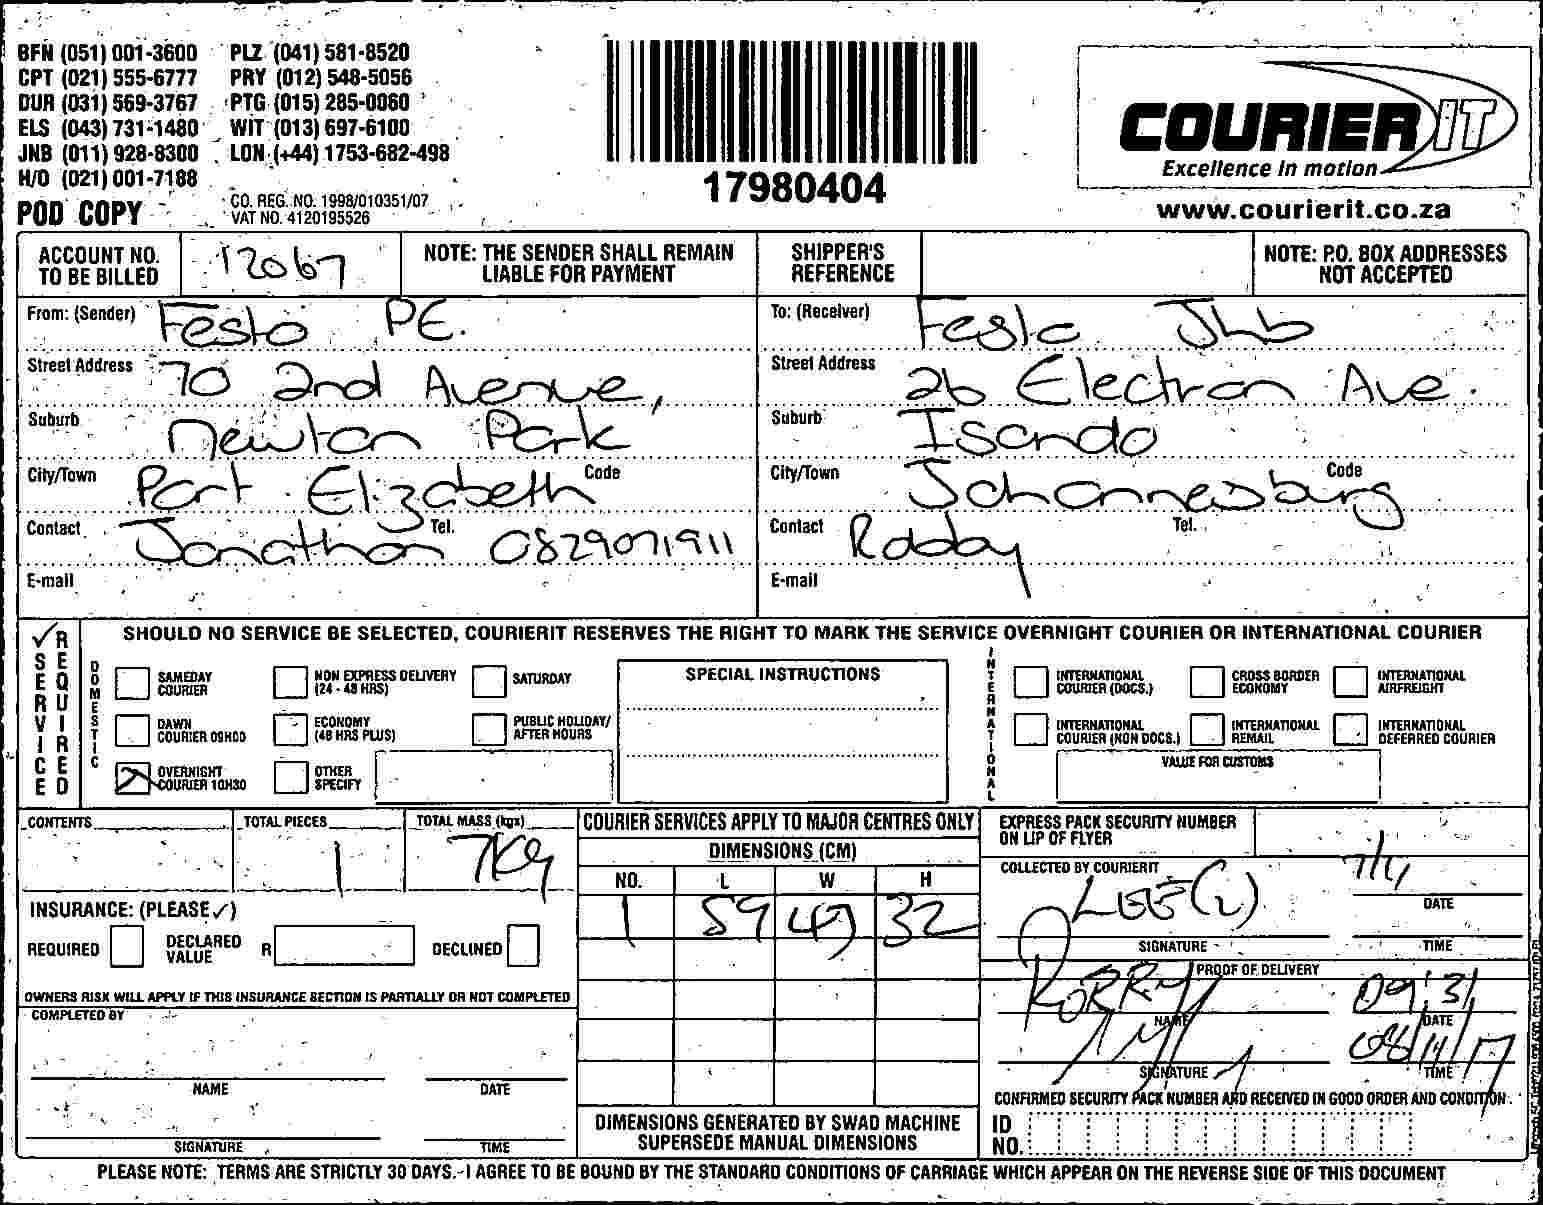 BFN (051) 001-3600 PLZ (041) 581-8520
CPT (021) 555-6777 PRY (012) 548-5056
DUR (031) 569-3767 PTG (015) 285-0060
ELS (043) 731-1480 WIT (013) 697-6100
JNB (011) 928-8300 LON (+44) 1753-682-498
H/O (021) 001-7188
CO. REG. NO. 1998/010351/07
POD COPY VAT NO. 4120195526
17980404
COURIER IT
Excellence in motion
www.courierit.co.za
ACCOUNT NO. TO BE BILLED 12067
NOTE: THE SENDER SHALL REMAIN LIABLE FOR PAYMENT
SHIPPER'S REFERENCE
NOTE: P.O. BOX ADDRESSES NOT ACCEPTED
From: (Sender) Festo PE.
Street Address 70 2nd Avenue,
Suburb Newton Park
City/Town Port Elizabeth Code
Contact Jonathon Tel. 0829071911
E-mail
To: (Receiver) Festo Jhb
Street Address 26 Electron Ave.
Suburb Isando
City/Town Johannesburg Code
Contact Robby Tel.
E-mail
✓ SERVICE REQUIRED
SHOULD NO SERVICE BE SELECTED, COURIERIT RESERVES THE RIGHT TO MARK THE SERVICE OVERNIGHT COURIER OR INTERNATIONAL COURIER
DOMESTIC
SAMEDAY COURIER
NON EXPRESS DELIVERY (24 - 48 HRS)
SATURDAY
DAWN COURIER 09H00
ECONOMY (48 HRS PLUS)
PUBLIC HOLIDAY/ AFTER HOURS
OVERNIGHT COURIER 10H30
OTHER SPECIFY
SPECIAL INSTRUCTIONS
INTERNATIONAL
INTERNATIONAL COURIER (DOCS.)
CROSS BORDER ECONOMY
INTERNATIONAL AIRFREIGHT
INTERNATIONAL COURIER (NON DOCS.)
INTERNATIONAL REMAIL
INTERNATIONAL DEFERRED COURIER
VALUE FOR CUSTOMS
CONTENTS
TOTAL PIECES 1
TOTAL MASS (kgs) 7KG
INSURANCE: (PLEASE ✓)
REQUIRED DECLARED VALUE R DECLINED
OWNERS RISK WILL APPLY IF THIS INSURANCE SECTION IS PARTIALLY OR NOT COMPLETED
COMPLETED BY
NAME DATE
SIGNATURE TIME
COURIER SERVICES APPLY TO MAJOR CENTRES ONLY
DIMENSIONS (CM)
NO. L W H
1 59 49 32
DIMENSIONS GENERATED BY SWAD MACHINE SUPERSEDE MANUAL DIMENSIONS
EXPRESS PACK SECURITY NUMBER ON LIP OF FLYER
COLLECTED BY COURIERIT
LEE 7/11
DATE
SIGNATURE TIME
PROOF OF DELIVERY
09:31
NAME DATE
08/11/17
SIGNATURE TIME
CONFIRMED SECURITY PACK NUMBER AND RECEIVED IN GOOD ORDER AND CONDITION.
ID NO.
PLEASE NOTE: TERMS ARE STRICTLY 30 DAYS. I AGREE TO BE BOUND BY THE STANDARD CONDITIONS OF CARRIAGE WHICH APPEAR ON THE REVERSE SIDE OF THIS DOCUMENT